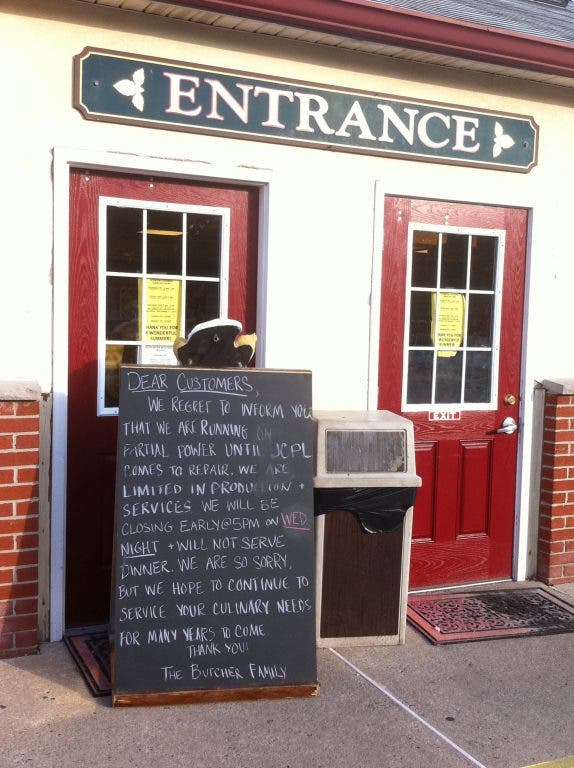 ENTRANCE
THANK YOU FOR
A WONDERFUL
SUMMER!
EXIT
DEAR CUSTOMERS,
WE REGRET TO INFORM YOU
THAT WE ARE RUNNING ON
PARTIAL POWER UNTIL JCPL
COMES TO REPAIR. WE ARE
LIMITED IN PRODUCTION +
SERVICES WE WILL BE
CLOSING EARLY @ 5PM ON WED.
NIGHT + WILL NOT SERVE
DINNER. WE ARE SO SORRY,
BUT WE HOPE TO CONTINUE TO
SERVICE YOUR CULINARY NEEDS
FOR MANY YEARS TO COME
THANK YOU!
THE BUTCHER FAMILY